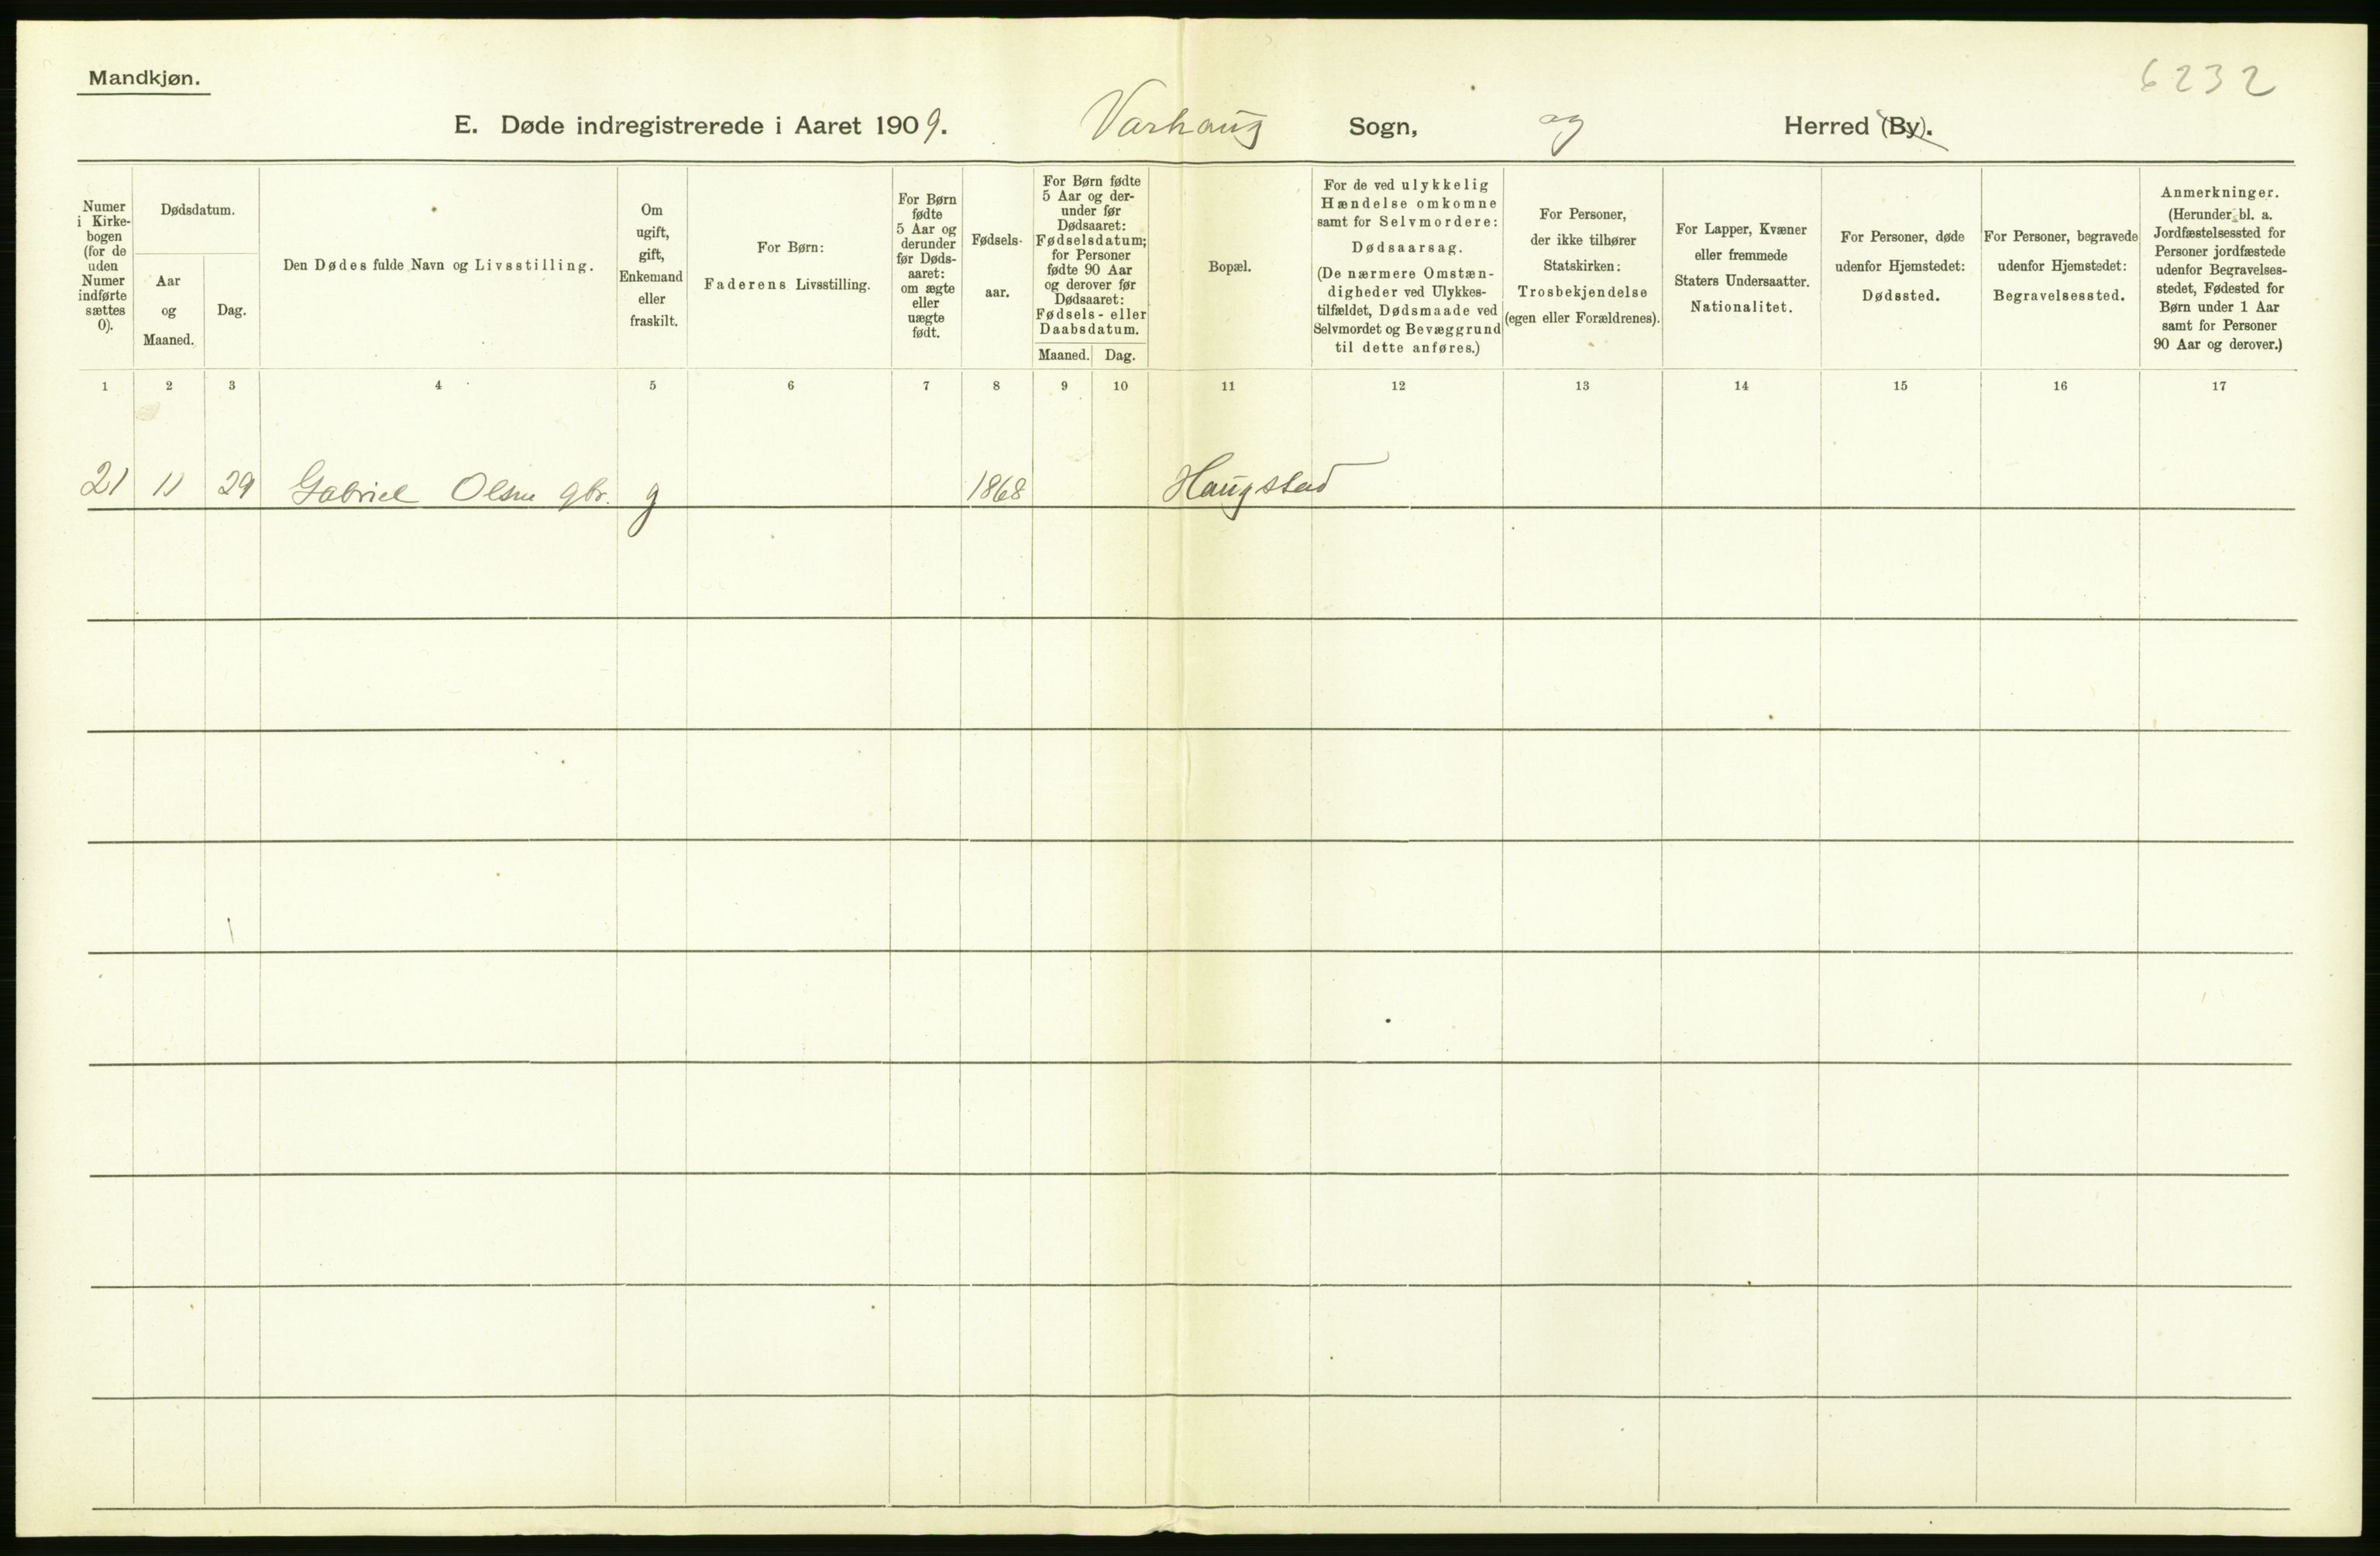 Mandkjøn.
6232
E. Døde indregistrerede i Aaret 1909. Varhaug Sogn, og Herred (By).
Numer
i Kirke-
bogen
(for de
uden
Numer
indførte
sættes
0).
Dødsdatum.
Aar
og
Maaned.
Dag.
Den Dødes fulde Navn og Livsstilling.
Om
ugift,
gift,
Enkemand
eller
fraskilt.
For Børn:
Faderens Livsstilling.
For Børn
fødte
5 Aar og
derunder
før Døds-
aaret:
om ægte
eller
uægte
født.
Fødsels-
aar.
For Børn fødte
5 Aar og der-
under før
Dødsaaret:
Fødselsdatum;
for Personer
fødte 90 Aar
og derover før
Dødsaaret:
Fødsels- eller
Daabsdatum.
Maaned. Dag.
Bopæl.
For de ved ulykkelig
Hændelse omkomne
samt for Selvmordere:
Dødsaarsag.
(De nærmere Omstæn-
digheder ved Ulykkes-
tilfældet, Dødsmaade ved
Selvmordet og Bevæggrund
til dette anføres.)
For Personer,
der ikke tilhører
Statskirken:
Trosbekjendelse
(egen eller Forældrenes).
For Lapper, Kvæner
eller fremmede
Staters Undersaatter.
Nationalitet.
For Personer, døde
udenfor Hjemstedet:
Dødssted.
For Personer, begravede
udenfor Hjemstedet:
Begravelsessted.
Anmerkninger.
(Herunder bl. a.
Jordfæstelsessted for
Personer jordfæstede
udenfor Begravelses-
stedet, Fødested for
Børn under 1 Aar
samt for Personer
90 Aar og derover.)
1 2 3 4 5 6 7 8 9 10 11 12 13 14 15 16 17
21 11 29 Gabriel Olsen gbr. g 1868 Haugstad